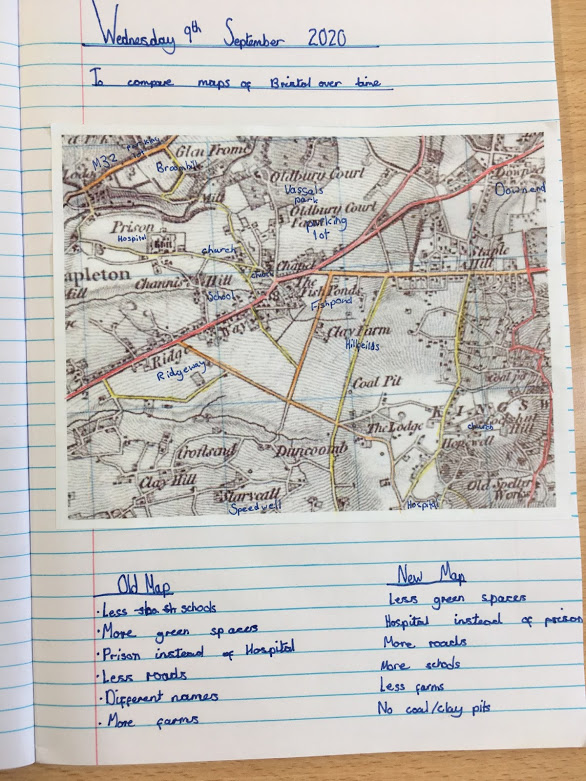 Wednesday 9th September 2020
To compare maps of Bristol over time
M32
parking lot
Glen Frome
Broomhill
Oldbury Court
Vassals park
Downend
Mill
Oldbury Court
parking lot
Prison
Hospital
church
Staple Hill
apleton
church
Chapel
Channis Hill
School
The Fish Ponds
Fishpond
Way
Clay Farm
Hillfeilds
Ridge
Ridgeway
Coal Pit
Coal Pit
KINGSW
The Lodge
church
Hopewell
Crofts end
Duncomb
Clay Hill
Starveall
Speedwell
Old Spelter Works
Hospital
Old Map
New Map
·Less schools
Less green spaces
·More green spaces
Hospital instead of prison
·Prison instead of Hospital
More roads
·Less roads
More schools
·Different names
Less farms
·More farms
No coal/clay pits